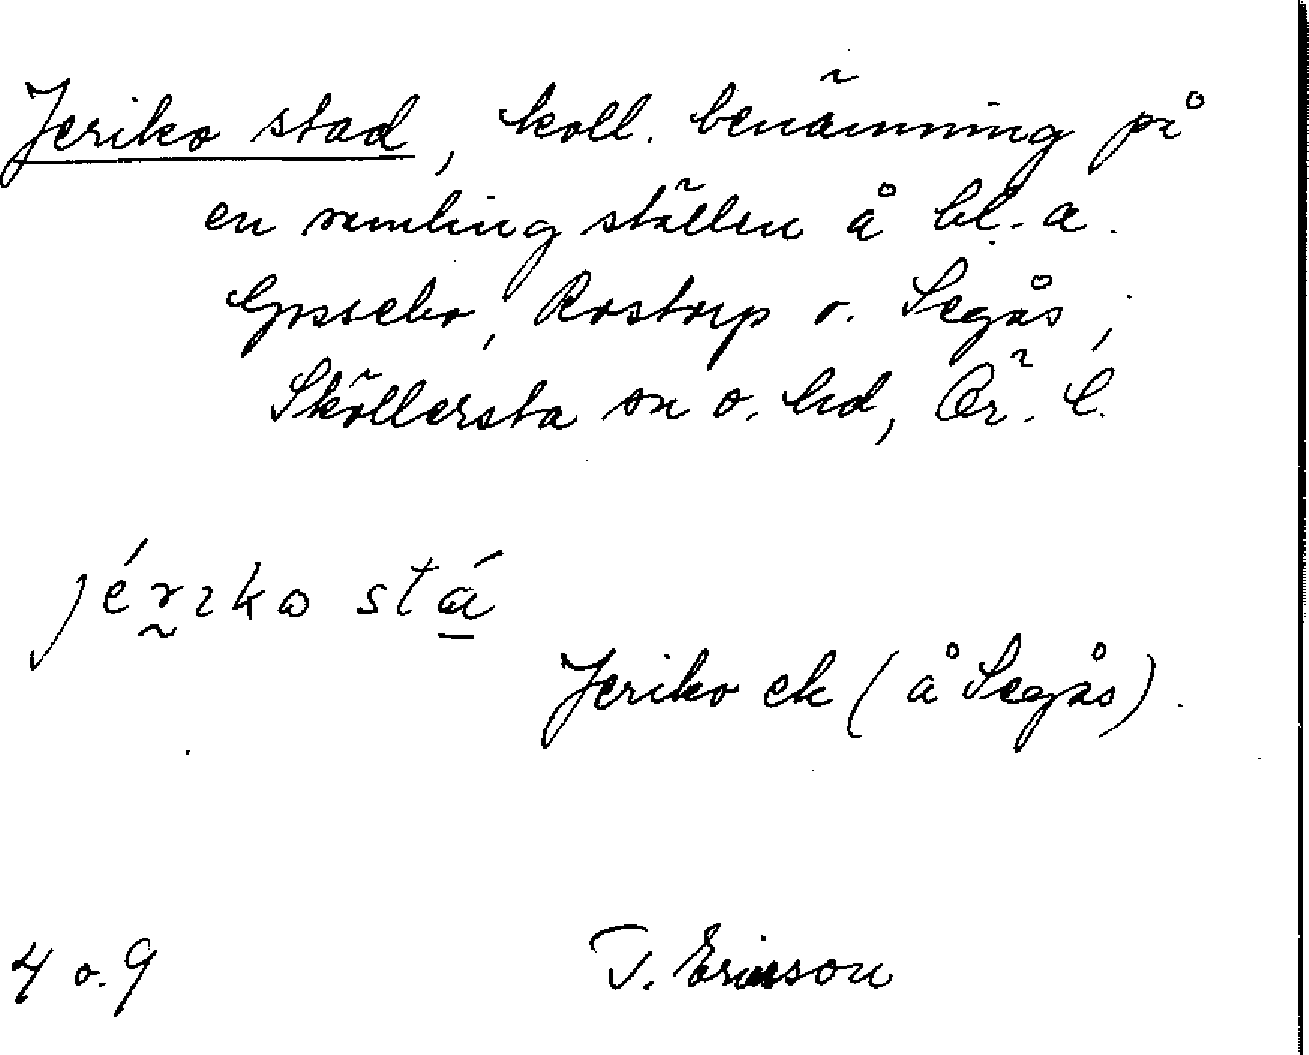 Jeriko stad, koll. benämning på
en samling ställen å bl. a.
Gossebo, Rostorp o. Segås,
Sköllersta sn o. hd, Ör. l.
jériko stá
Jeriko ek (å Segås).
4 o. 9
T. Ericson